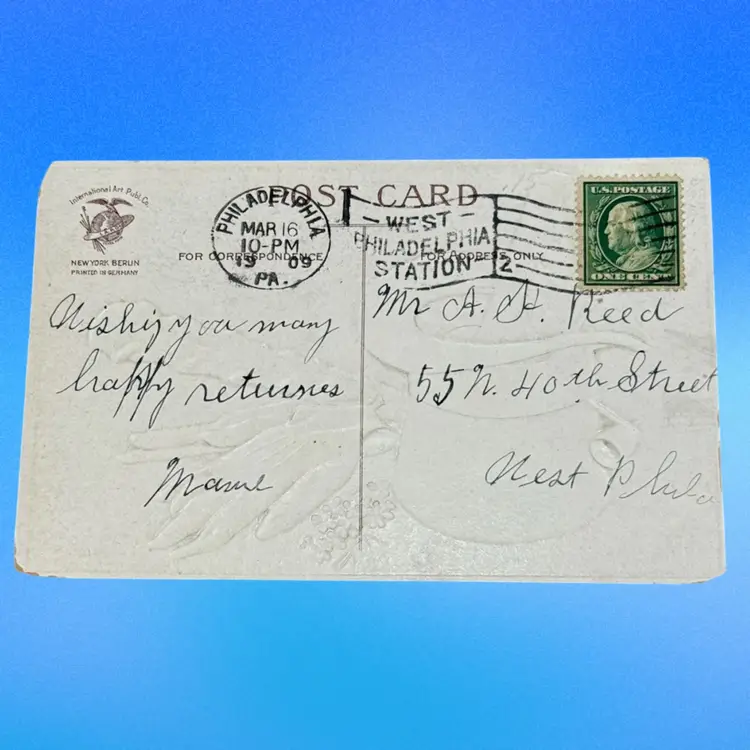 International Art Publ. Co.
NEW YORK BERLIN
PRINTED IN GERMANY
POST CARD
PHILADELPHIA
MAR 16
10-PM
1909
PA.
WEST
PHILADELPHIA
STATION
2
U.S. POSTAGE
ONE CENT
FOR CORRESPONDENCE
FOR ADDRESS ONLY
Wishing you many
happy returnes
Mame
Mr A. H. Reed
55 N. 40th Street
West Phila